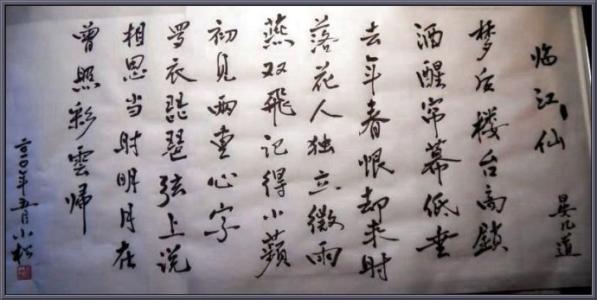 临江仙
晏几道
梦后楼台高鎖
酒醒帘幕低垂
去年春恨却来时
落花人独立微雨
燕双飞记得小蘋
初见两重心字
罗衣琵琶弦上说
相思当时明月在
曾照彩雲归
年五月小松